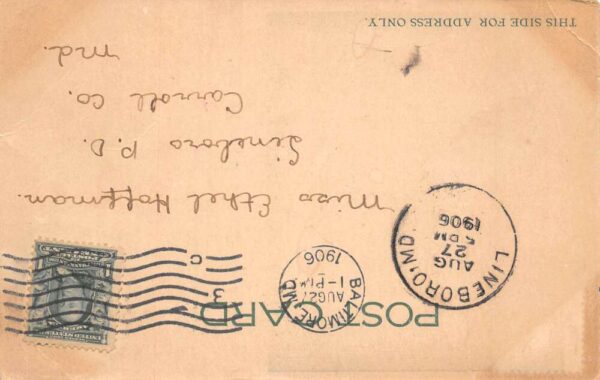 POST CARD
BALTIMORE, MD.
AUG 27
1-P M
1906
3
C
LINEBORO, MD.
AUG
27
5 PM
1906
UNITED STATES
Miss Ethel Hoffman.
Lineboro P.O.
Carroll Co.
Md.
THIS SIDE FOR ADDRESS ONLY.